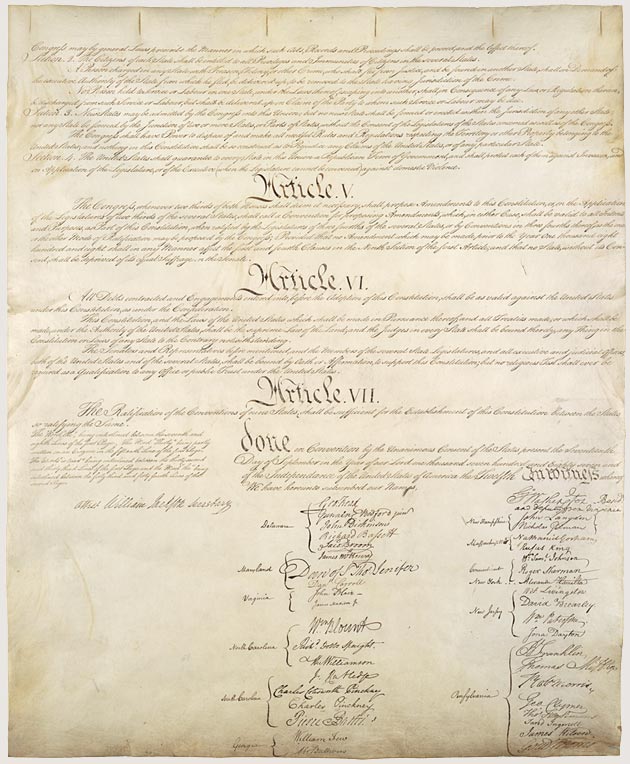 Congress may by general Laws prescribe the Manner in which such Acts, Records and Proceedings shall be proved, and the Effect thereof.
Section. 2. The Citizens of each State shall be entitled to all Privileges and Immunities of Citizens in the several States.
A Person charged in any State with Treason, Felony, or other Crime, who shall flee from Justice, and be found in another State, shall on Demand of
the executive Authority of the State from which he fled, be delivered up, to be removed to the State having Jurisdiction of the Crime.
No Person held to Service or Labour in one State, under the Laws thereof, escaping into another, shall, in Consequence of any Law or Regulation therein,
be discharged from such Service or Labour, but shall be delivered up on Claim of the Party to whom such Service or Labour may be due.
Section. 3. New States may be admitted by the Congress into this Union; but no new State shall be formed or erected within the Jurisdiction of any other State;
nor any State be formed by the Junction of two or more States, or Parts of States, without the Consent of the Legislatures of the States concerned as well as of the Congress.
The Congress shall have Power to dispose of and make all needful Rules and Regulations respecting the Territory or other Property belonging to the
United States; and nothing in this Constitution shall be so construed as to Prejudice any Claims of the United States, or of any particular State.
Section. 4. The United States shall guarantee to every State in this Union a Republican Form of Government, and shall protect each of them against Invasion; and
on Application of the Legislature, or of the Executive (when the Legislature cannot be convened) against domestic Violence.
Article. V.
The Congress, whenever two thirds of both Houses shall deem it necessary, shall propose Amendments to this Constitution, or, on the Application
of the Legislatures of two thirds of the several States, shall call a Convention for proposing Amendments, which, in either Case, shall be valid to all Intents
and Purposes, as Part of this Constitution, when ratified by the Legislatures of three fourths of the several States, or by Conventions in three fourths thereof, as the one
or the other Mode of Ratification may be proposed by the Congress; Provided that no Amendment which may be made prior to the Year One thousand eight
hundred and eight shall in any Manner affect the first and fourth Clauses in the Ninth Section of the first Article; and that no State, without its Con-
sent, shall be deprived of its equal Suffrage in the Senate.
Article. VI.
All Debts contracted and Engagements entered into, before the Adoption of this Constitution, shall be as valid against the United States
under this Constitution, as under the Confederation.
This Constitution, and the Laws of the United States which shall be made in Pursuance thereof; and all Treaties made, or which shall be
made, under the Authority of the United States, shall be the supreme Law of the Land; and the Judges in every State shall be bound thereby, any Thing in the
Constitution or Laws of any State to the Contrary notwithstanding.
The Senators and Representatives before mentioned, and the Members of the several State Legislatures, and all executive and judicial Officers,
both of the United States and of the several States, shall be bound by Oath or Affirmation, to support this Constitution; but no religious Test shall ever be
required as a Qualification to any Office or public Trust under the United States.
Article. VII.
The Ratification of the Conventions of nine States, shall be sufficient for the Establishment of this Constitution between the States
so ratifying the Same.
The Word, "the," being interlined between the seventh and
eighth Lines of the first Page,
The Word "Thirty" being partly
written on an Erazure in the fifteenth Line of the first Page,
The Words "is tried" being interlined between the thirty second
and thirty third Lines of the first Page and the Word "the" being
interlined between the forty third and forty fourth Lines of the
second Page.
Attest William Jackson Secretary
done in Convention by the Unanimous Consent of the States present the Seventeenth
Day of September in the Year of our Lord one thousand seven hundred and Eighty seven and
of the Independance of the United States of America the Twelfth In Witness whereof
We have hereunto subscribed our Names,
Delaware
Geo: Read
Gunning Bedford jun
John Dickinson
Richard Bassett
Jaco: Broom
Maryland
James McHenry
Dan of St Thos Jenifer
Danl Carroll
Virginia
John Blair
James Madison Jr
North Carolina
Wm Blount
Richd Dobbs Spaight
Hu Williamson
South Carolina
J. Rutledge
Charles Cotesworth Pinckney
Charles Pinckney
Pierce Butler
Georgia
William Few
Abr Baldwin
Go Washington Presidt
and deputy from Virginia
New Hampshire
John Langdon
Nicholas Gilman
Massachusetts
Nathaniel Gorham
Rufus King
Connecticut
Wm Saml Johnson
Roger Sherman
New York
Alexander Hamilton
New Jersey
Wil: Livingston
David Brearley
Wm Paterson
Jona: Dayton
Pensylvania
B Franklin
Thomas Mifflin
Robt Morris
Geo. Clymer
Thos FitzSimons
Jared Ingersoll
James Wilson
Gouv Morris